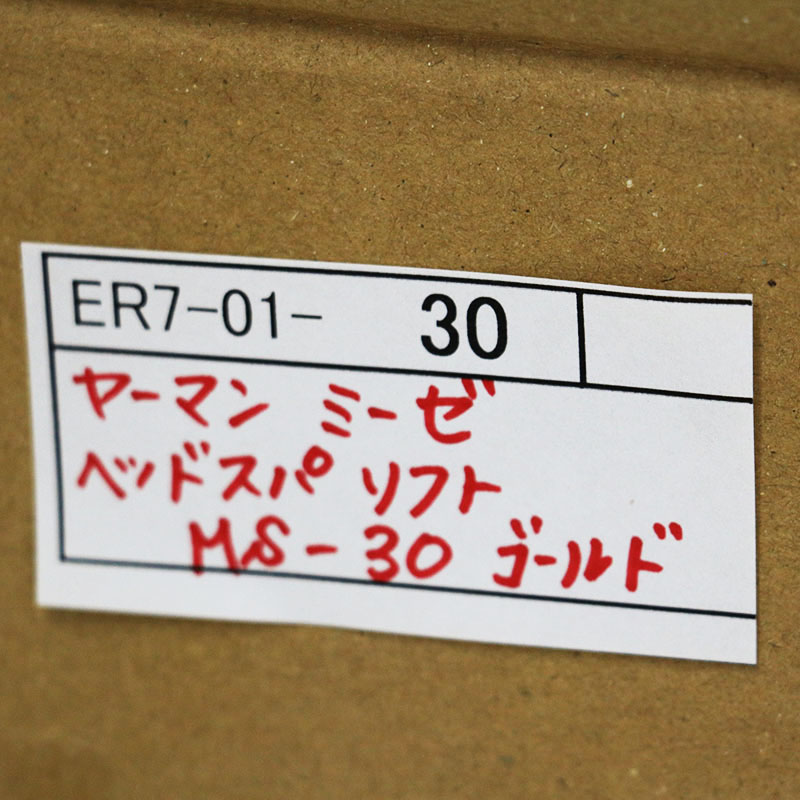 ER7-01- 30
ヤーマン ミーゼ
ヘッドスパ リフト
MS-30 ゴールド